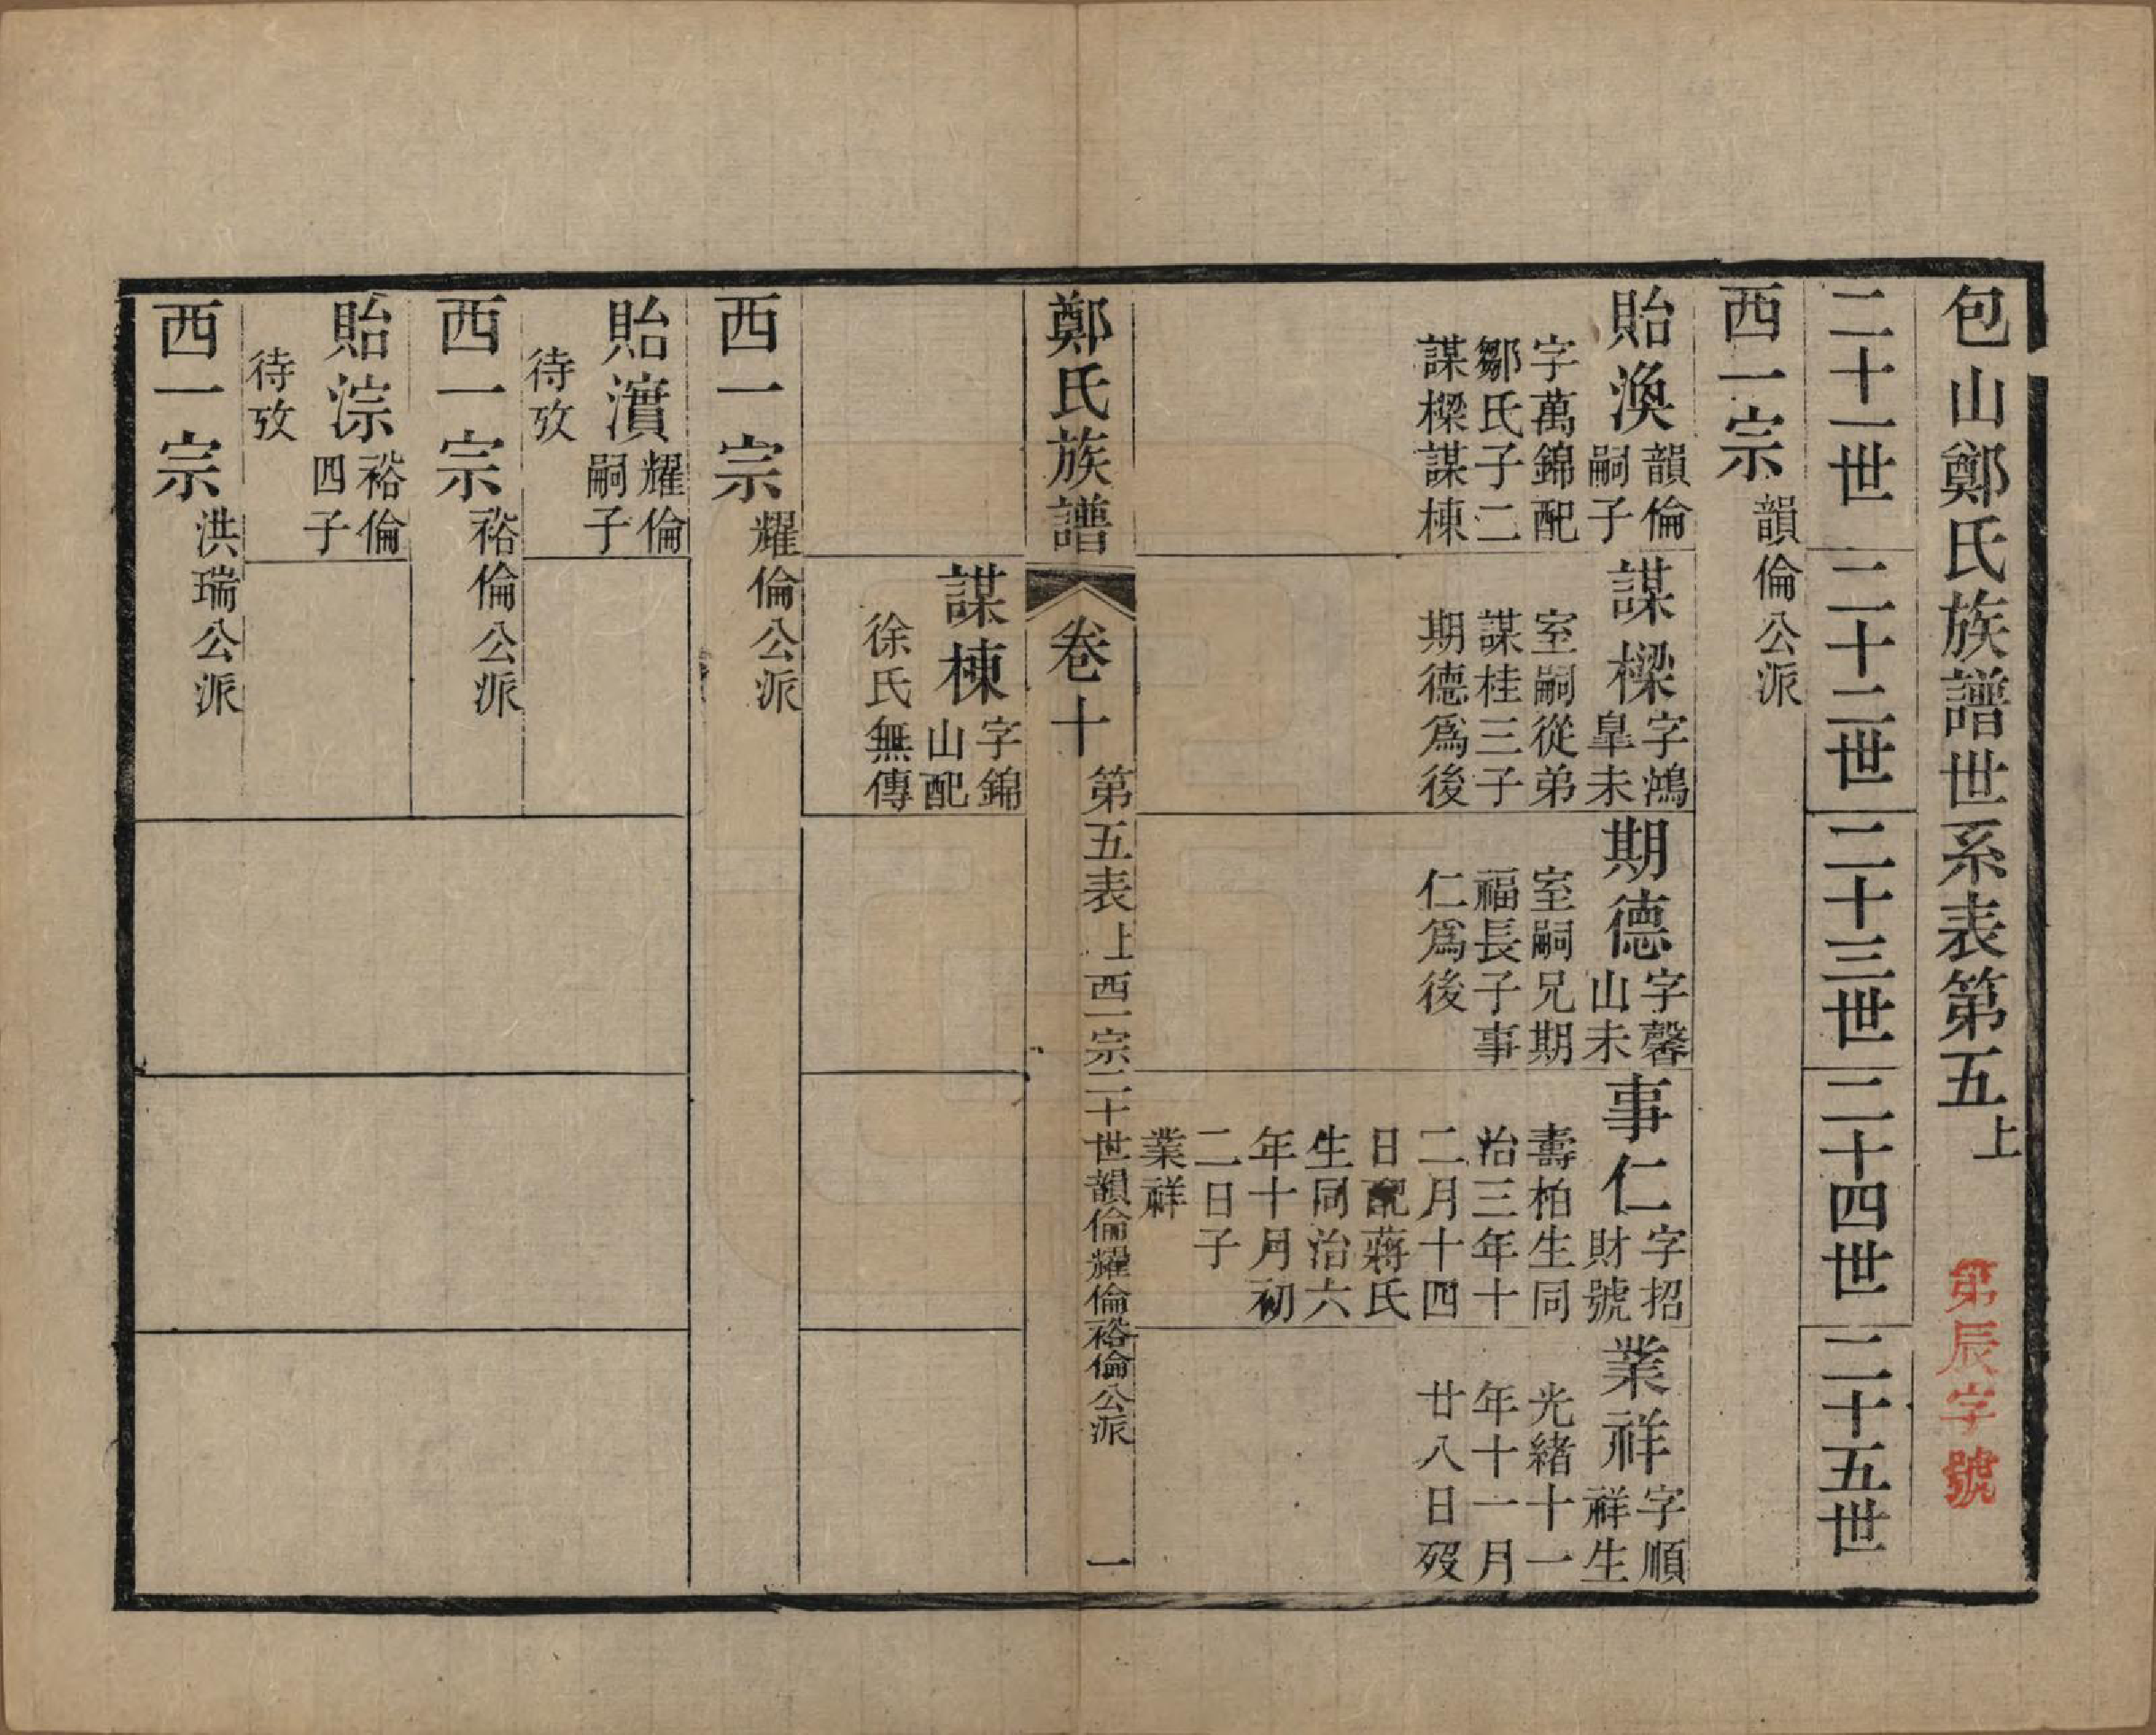 包山鄭氏族譜世系表第五上
第辰字號
二十一世
二十二世
二十三世
二十四世
二十五世
西一宗韻倫公派
貽渙韻倫
嗣子
字萬錦配
鄒氏子二
謀樑謀棟
謀樑字鴻
臯未
室嗣從弟
謀桂三子
期德爲後
期德字馨
山未
室嗣兄期
福長子事
仁爲後
事仁字招
財號
壽柏生同
治三年十
二月十四
日配蔣氏
生同治六
年十月初
二日子
業祥
業祥字順
祥生
光緒十一
年十一月
廿八日歿
鄭氏族譜
卷十
第五表上西一宗二十世韻倫耀倫裕倫公派
一
謀棟字錦
山配
徐氏無傳
西一宗耀倫公派
貽濱耀倫
嗣子
待攷
西一宗裕倫公派
貽淙裕倫
四子
待攷
西一宗洪瑞公派